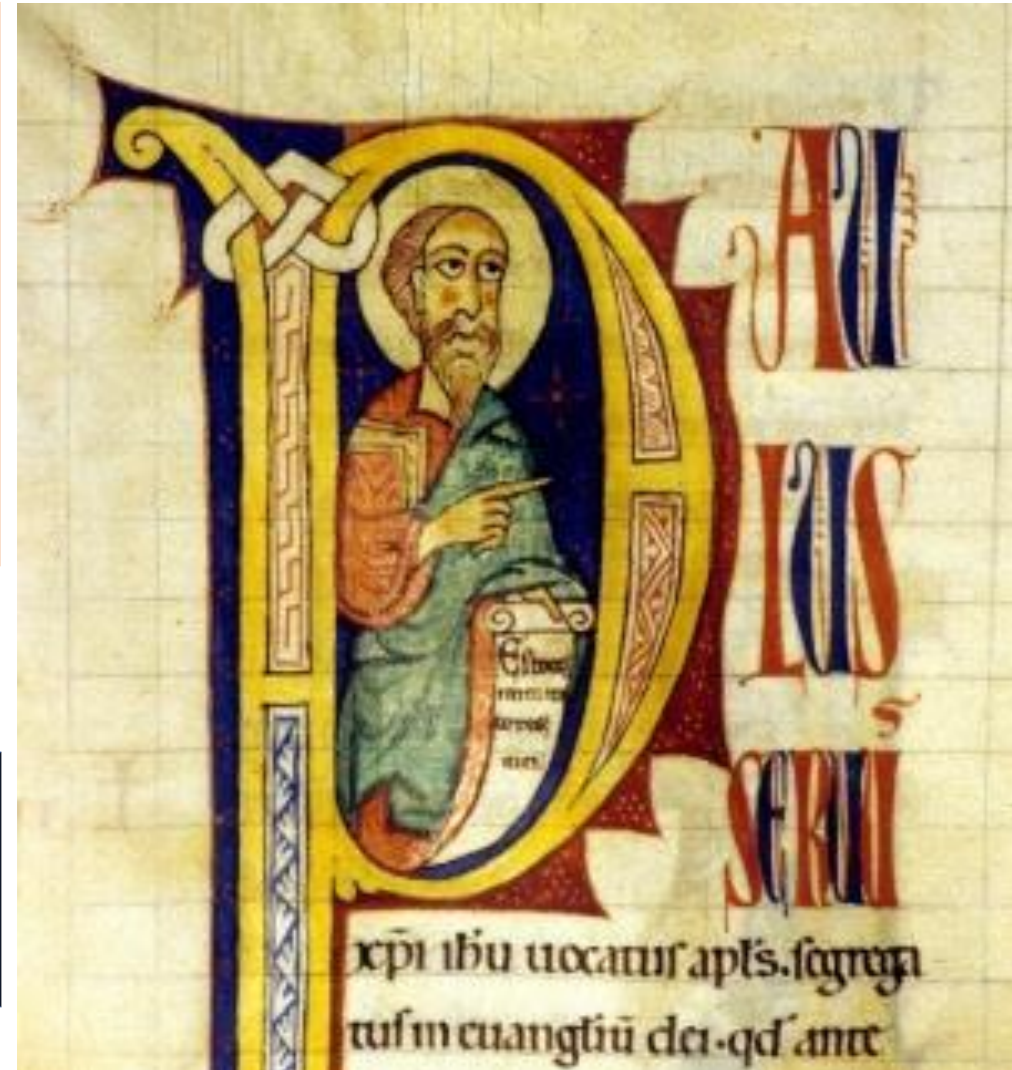 PAU
LUS
SERUUS
xp̄i ih̄u uocatus apl̄s. segrega
tus in euangl̄iū dei. qd̄ ante